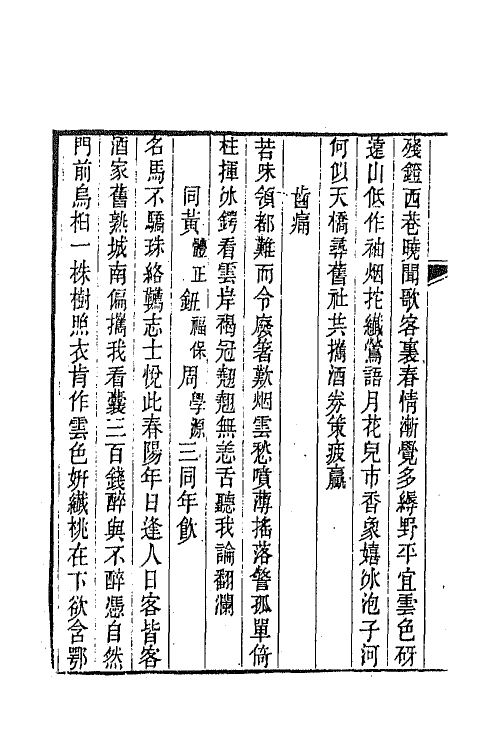 殘鐙西巷曉聞歌客裏春情漸覺多繹野平宜雲色砑
遠山低作袖烟拕纖鶯語月花兒市香象嬉冰泡子河
何似天橋尋舊社共攜酒劵策疲羸
齒痛
苦味領都難而今廢箸歎烟雲愁噴薄搖落警孤單倚
柱揮冰鍔看雲岸褐冠翹翹無恙舌聽我論翻瀾
同黃體正鈕福保周學源三同年飲
名馬不驕珠絡鞿志士悅此春陽年日逢人日客皆客
酒家舊熟城南偏攜我看囊三百錢醉與不醉憑自然
門前烏桕一株樹照衣肯作雲色妍纖桃在下欲含鄂